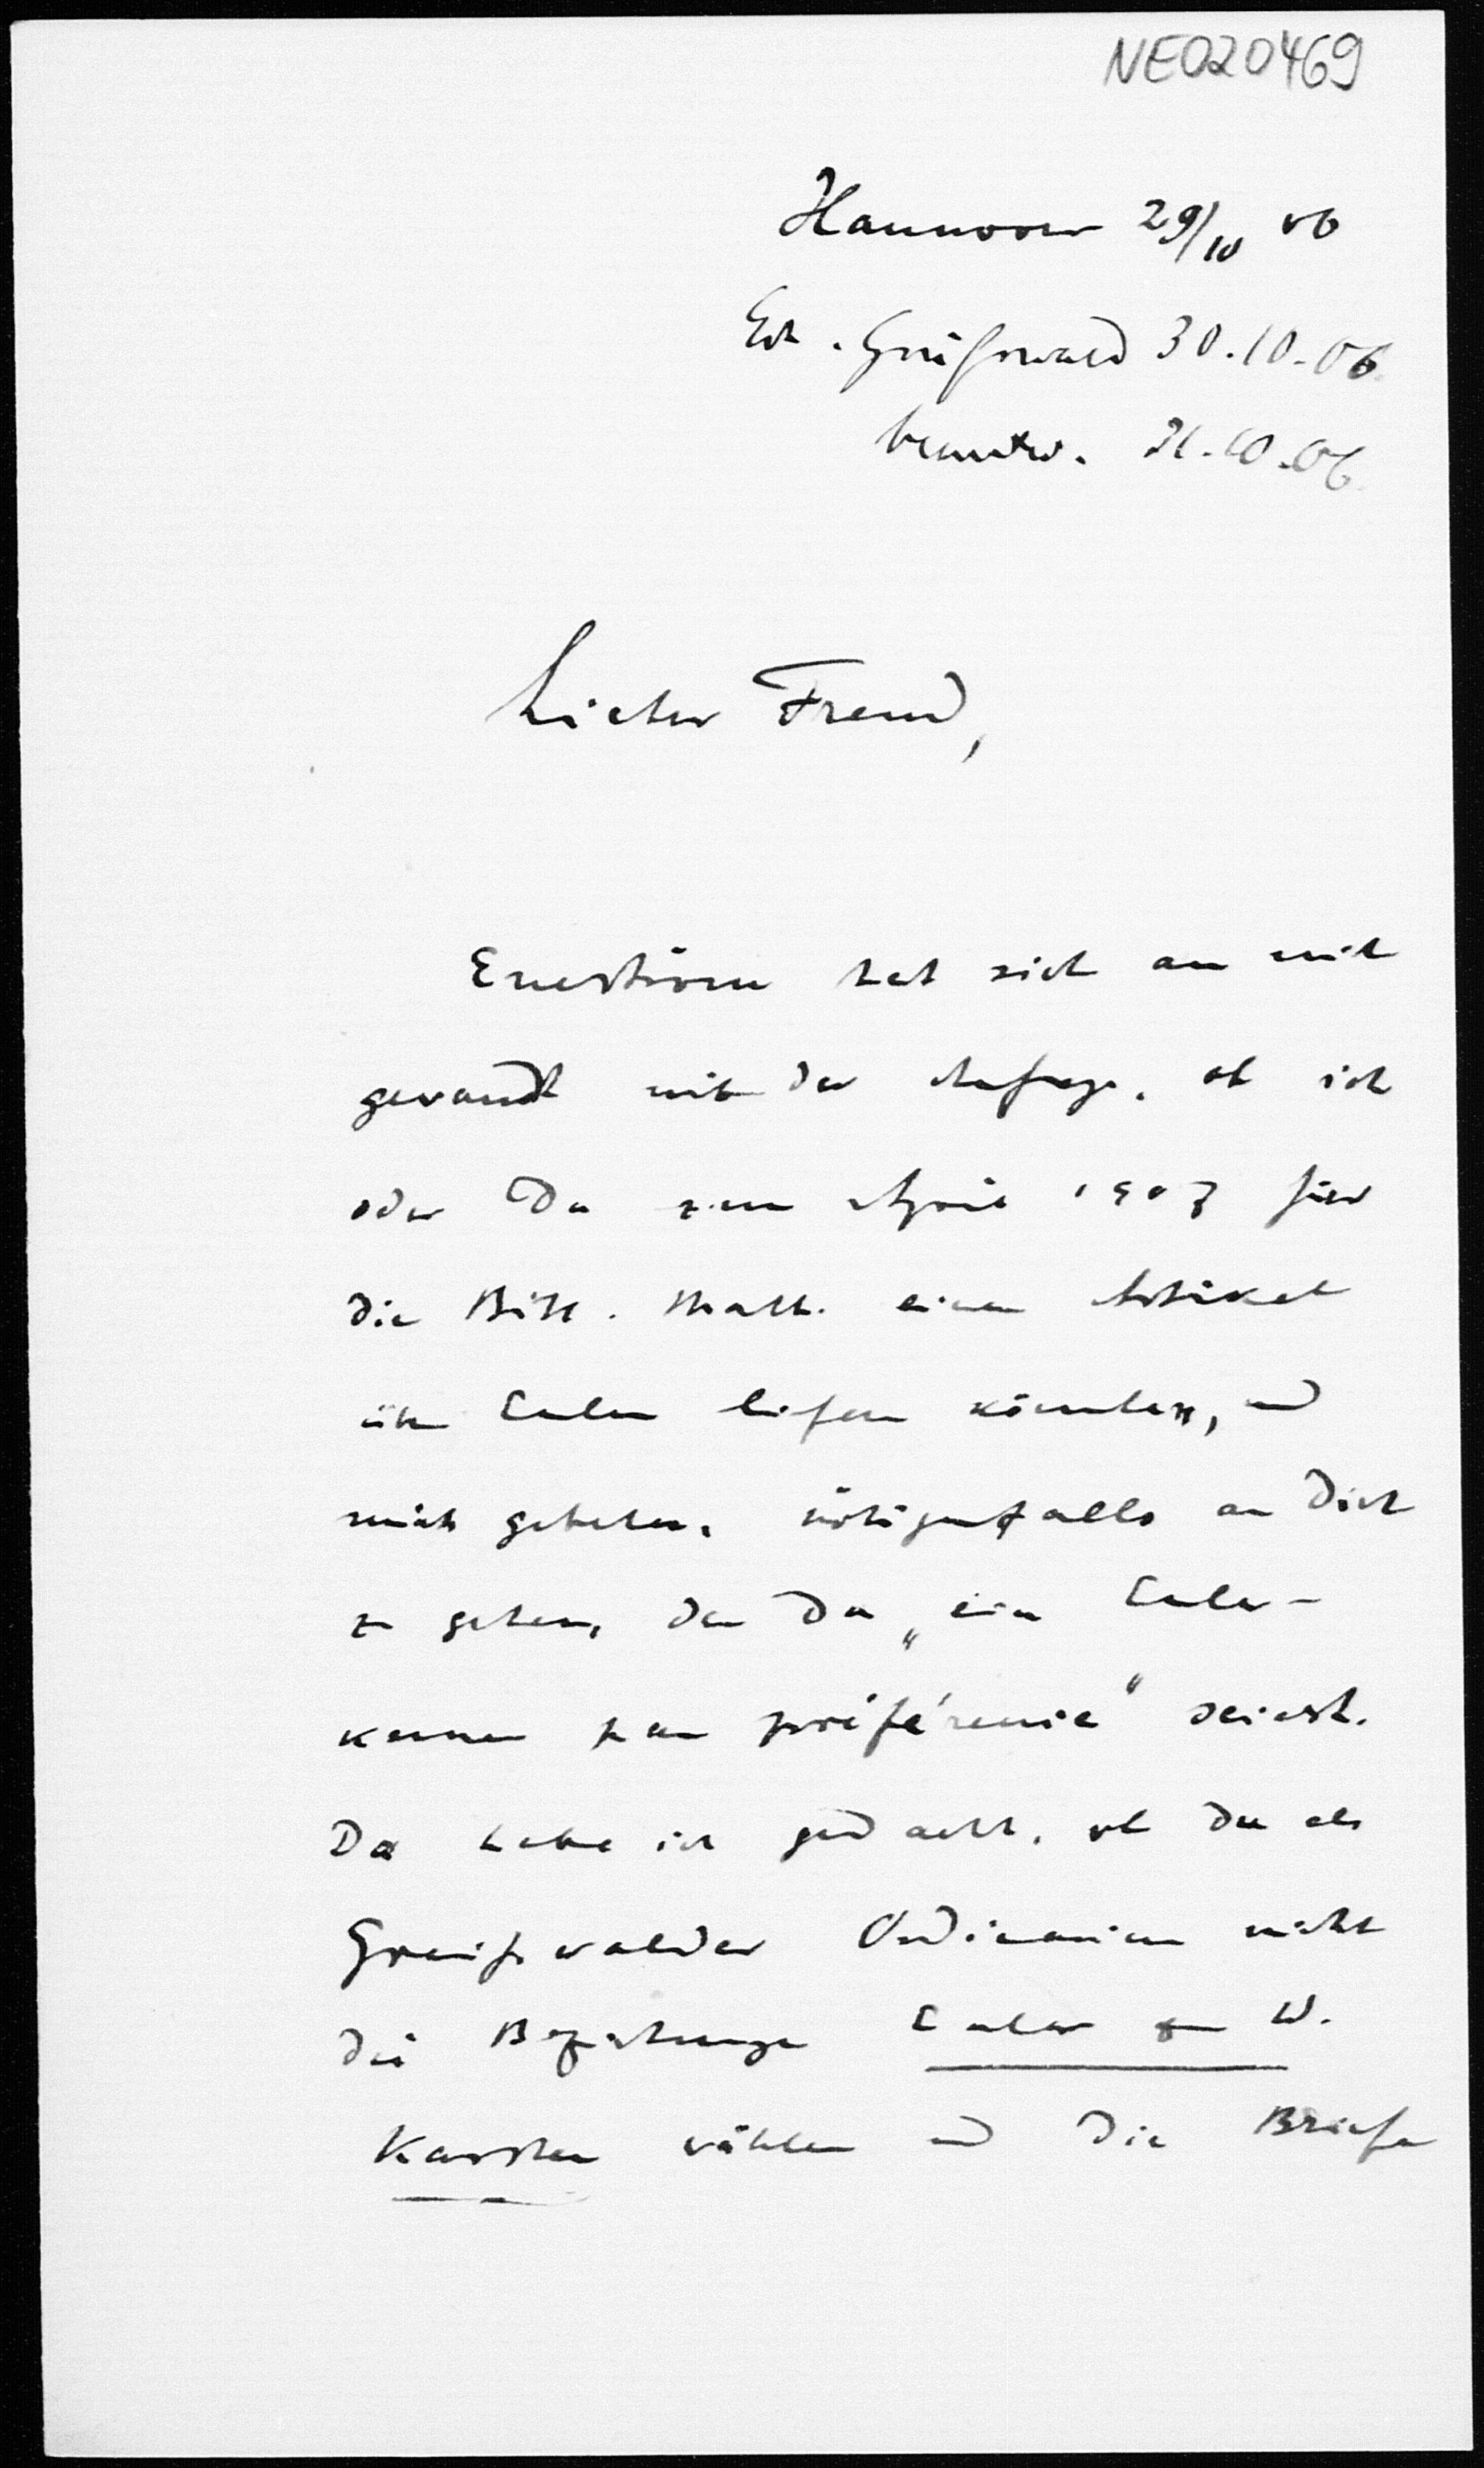 NE020469
Hannover 29/10 06
Erh. Greifswald 30.10.06.
beantw. 31.10.06.
Lieber Freund,
Eneström hat sich an mich
gewandt mit der Anfrage, ob ich
oder Du zum April 1907 für
die Bibl. Math. einen Artikel
über Euler liefern könnten, und
mich gebeten, nötigenfalls an Dich
zu gehen, da Du „ein Euler-
kenner par préférence" seiest.
Da habe ich gedacht, ob Du als
Greifswalder Ordinarius nicht
die Beziehungen Euler zu W.
Karsten wählen und die Briefe